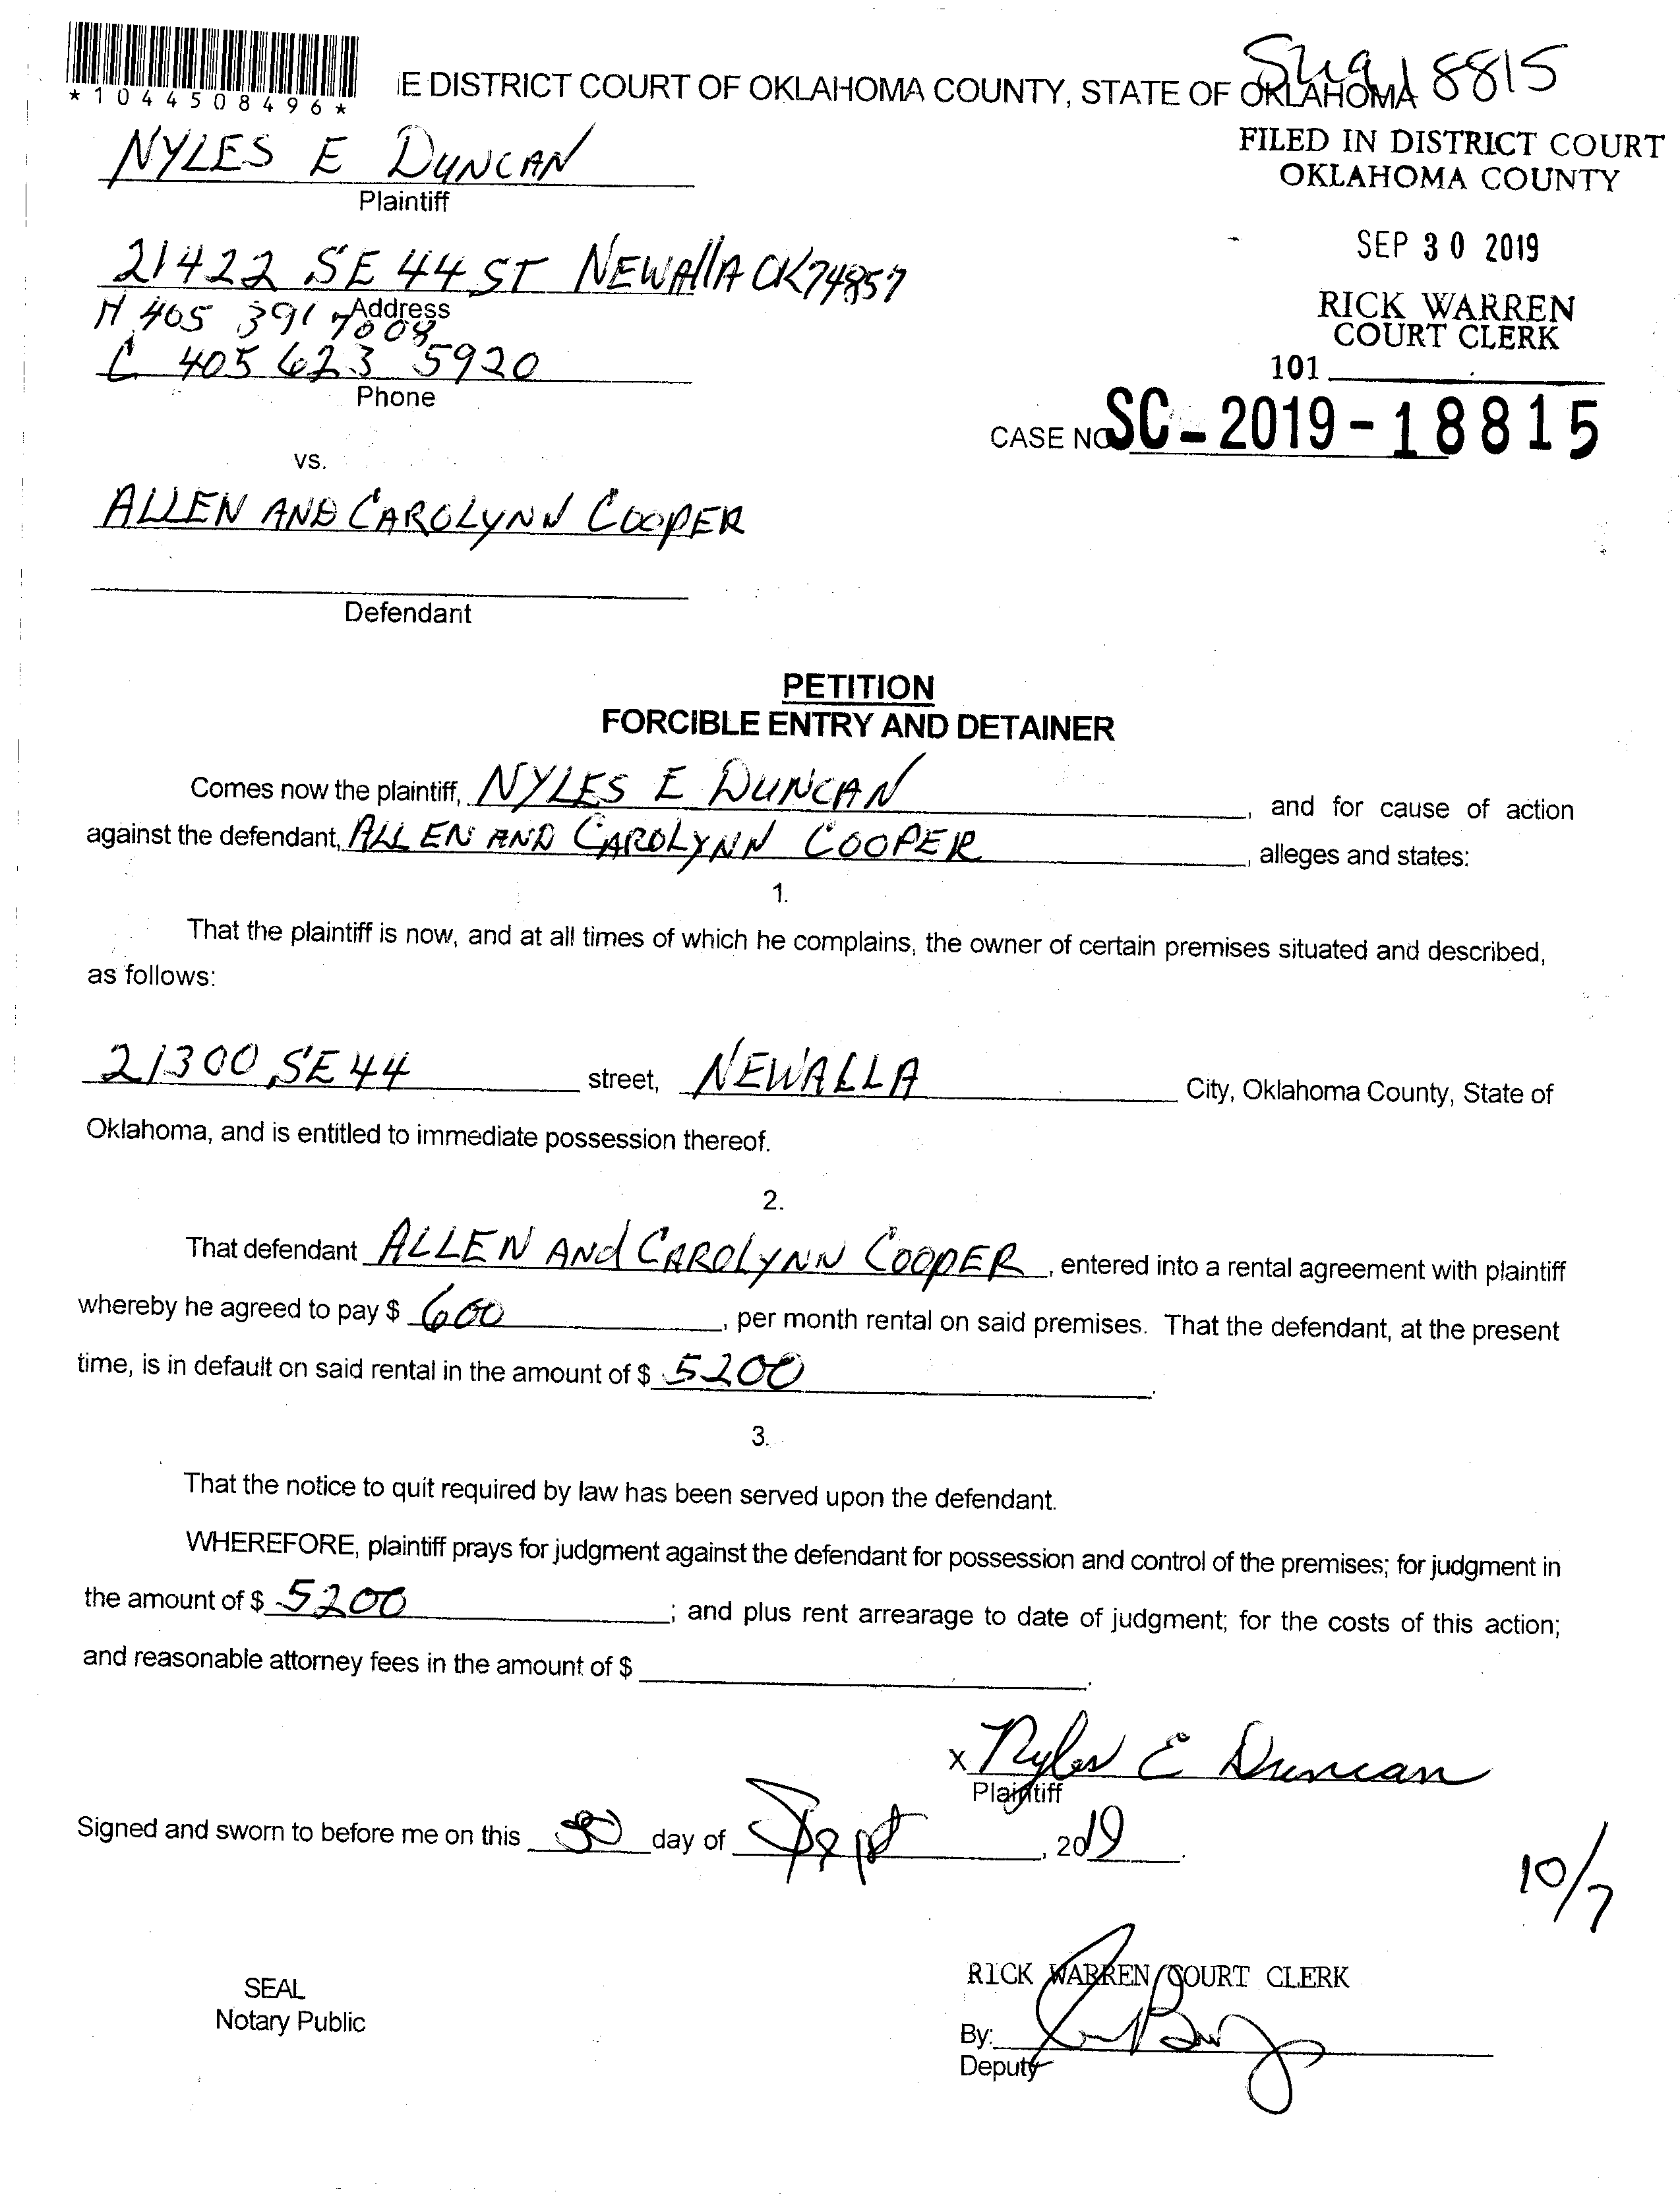 *1044508496*
E DISTRICT COURT OF OKLAHOMA COUNTY, STATE OF OKLAHOMA
18815
FILED IN DISTRICT COURT
OKLAHOMA COUNTY
NYLES E DUNCAN
Plaintiff
SEP 30 2019
21422 SE 44 ST NEWAllA OK 74857
Address
H 405 391 7008
RICK WARREN
COURT CLERK
C 405 623 5920
Phone
101
CASE NO SC-2019-18815
vs.
ALLEN AND CAROLYNN COOPER
Defendant
PETITION
FORCIBLE ENTRY AND DETAINER
Comes now the plaintiff, NYLES E DUNCAN, and for cause of action
against the defendant, ALLEN AND CAROLYNN COOPER, alleges and states:
1.
That the plaintiff is now, and at all times of which he complains, the owner of certain premises situated and described,
as follows:
21300 SE 44 street, NEWALLA City, Oklahoma County, State of
Oklahoma, and is entitled to immediate possession thereof.
2.
That defendant ALLEN ANd CAROLYNN COOPER, entered into a rental agreement with plaintiff
whereby he agreed to pay $ 600, per month rental on said premises. That the defendant, at the present
time, is in default on said rental in the amount of $ 5200.
3.
That the notice to quit required by law has been served upon the defendant.
WHEREFORE, plaintiff prays for judgment against the defendant for possession and control of the premises; for judgment in
the amount of $ 5200; and plus rent arrearage to date of judgment; for the costs of this action;
and reasonable attorney fees in the amount of $.
x Nyles E Duncan
Plaintiff
Signed and sworn to before me on this 30 day of Sept, 2019.
10/7
RICK WARREN COURT CLERK
SEAL
Notary Public
By:
Deputy